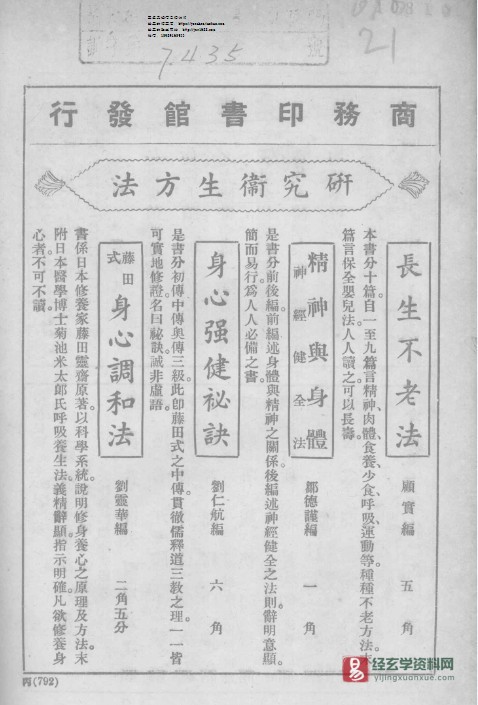 7435
21
商務印書館發行
研究衛生方法
長生不老法
顧實編 五角
本書分十篇。自一至九篇言精神、肉體、食養、少食、呼吸、運動等。種種不老方法。末
篇言保全嬰兒法。人人讀之。可以長壽。
精神與身體
神經健全法
鄒德謹編 一角
是書分前後編。前編述身體與精神之關係。後編述神經健全之法則。辭明意顯。
簡而易行。為人人必備之書。
身心强健祕訣
劉仁航編 六角
是書分初傳中傳奧傳三級。此卽藤田式之中傳。貫徹儒釋道三教之理。一一皆
可實地修證。名曰祕訣。誠非虛語。
藤田式身心調和法
劉靈華編 二角五分
書係日本修養家藤田靈齋原著。以科學系統。說明修身養心之原理及方法。末
附日本醫學博士菊池米太郎氏呼吸養生法。義精辭顯。指示明確。凡欲修養身
心者。不可不讀。
丙(792)
易
经玄学资料网
yijingxuanxue.com